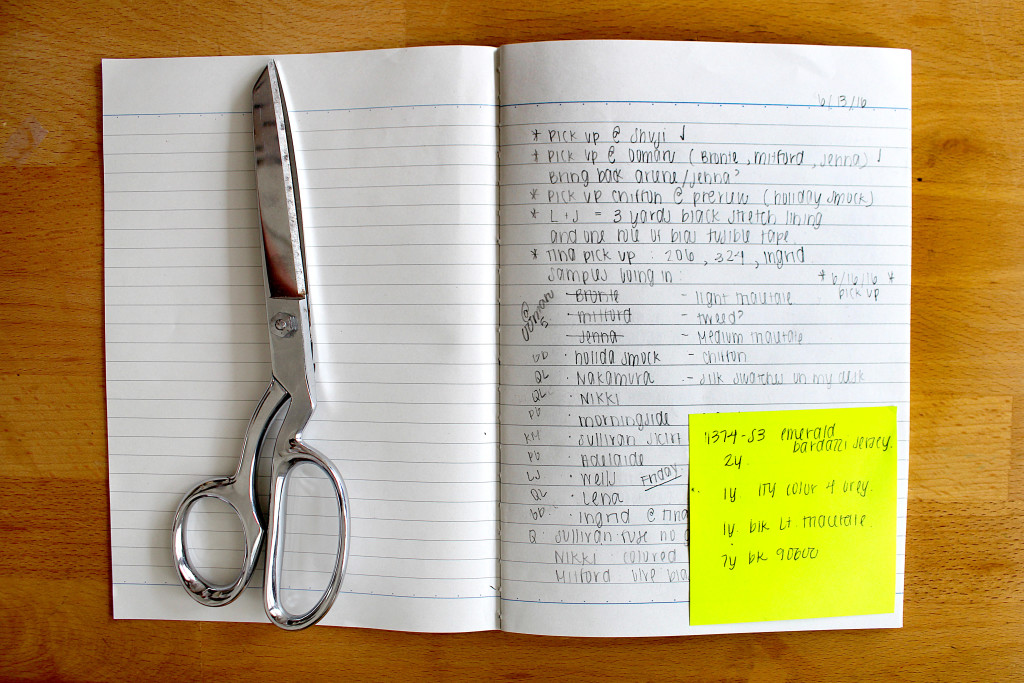 6/13/16
* PICK UP @ Shuji ↓
* PICK UP @ Daman (Bronte, milford, Jenna) ↓
Bring back arlene/Jenna?
* PICK UP chiffon @ preview (holiday smock)
* L+J = 3 yards black stretch lining
and one role of bias fusible tape.
* Tina pick up : 206, 324, Ingrid
Samples going in :
* 6/16/16 *
pick up
@ Daman's
Bronte - light mautale
milford - tweed?
Jenna - Medium mautale
holida smock - chiffon
QL · Nakamura - silk swatches on my desk
QL · NIKKI
PB · morningside
KM · Sullivan skirt
PB · Adelaide
LJ · Wells Friday
QL · Lena
· Ingrid @ Tina
Q · Sullivan no
NIKKI colored
Milford
11374-53 emerald
bardazzi jersey.
2y.
1y ITY color 4 grey.
1y. blk Lt mautale.
7y bk